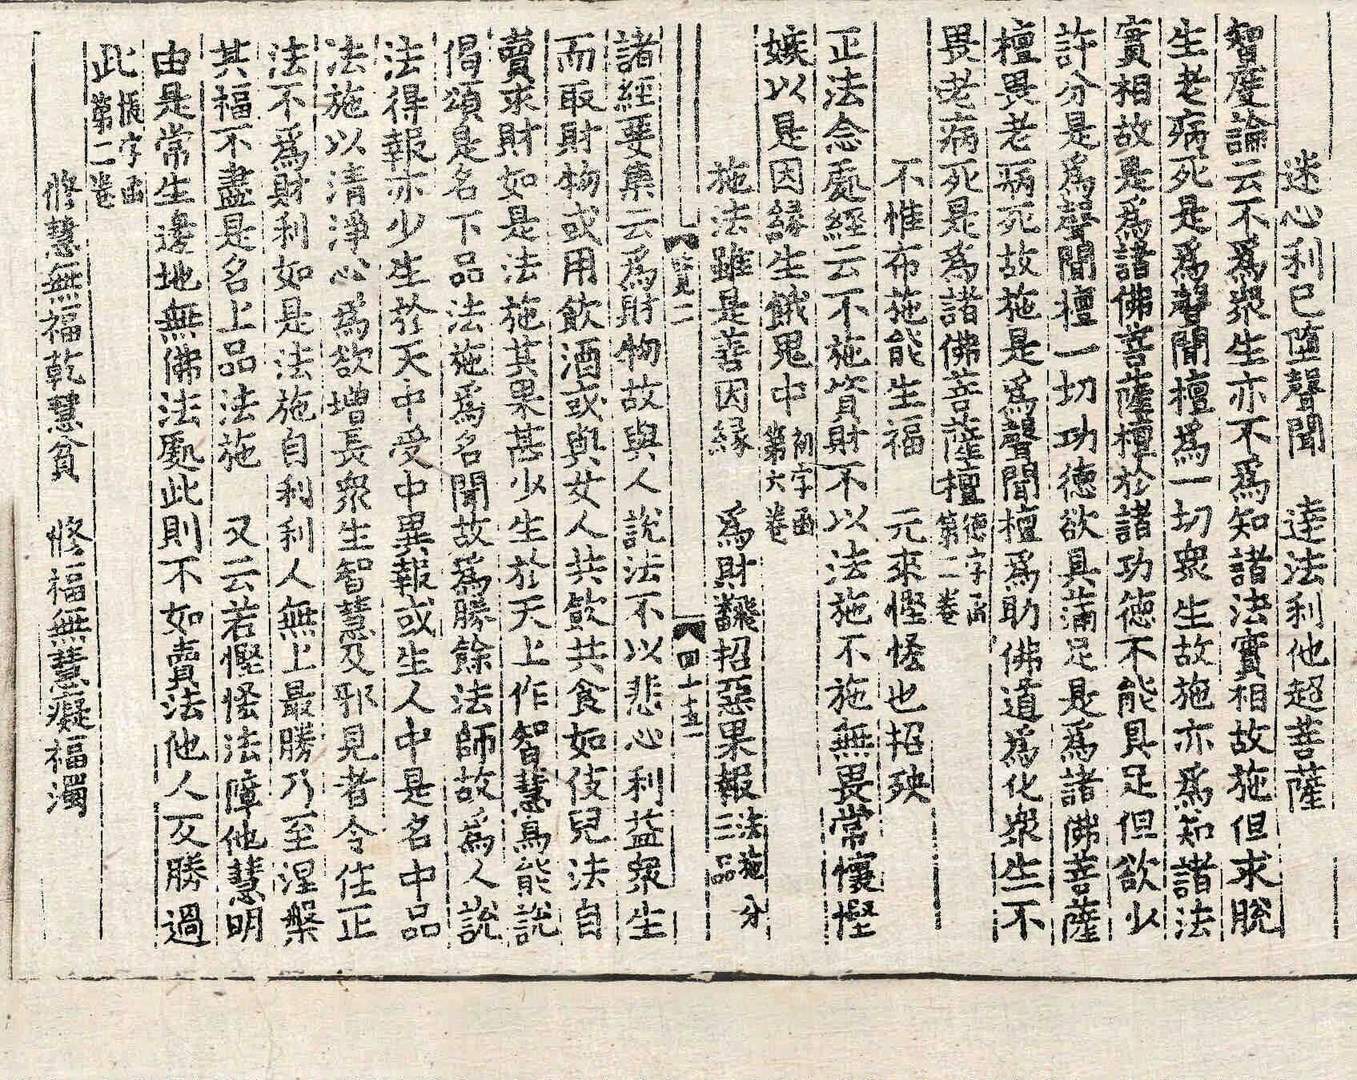 迷心利已墮聲聞　達法利他超菩薩
智度論云不爲衆生亦不爲知諸法實相故施但求脫
生老病死是爲聲聞檀爲一切衆生故施亦爲知諸法
實相故是爲諸佛菩薩檀於諸功德不能具足但欲少
許分是爲聲聞檀一切功德欲具滿足是爲諸佛菩薩
檀畏老病死故施是爲聲聞檀爲助佛道爲化衆生不
畏老病死是爲諸佛菩薩檀德字函第二卷
不惟布施能生福　元來慳悋也招殃
正法念處經云不施資財不以法施不施無畏常懷慳
嫉以是因緣生餓鬼中初字函第六卷
施法雖是善因緣　爲財飜招惡果報法施分三品
覽二　四十五
諸經要集云爲財物故與人說法不以悲心利益衆生
而取財物或用飲酒或與女人共飮共食如伎兒法自
賣求財如是法施其果甚少生於天上作智慧鳥能說
偈頌是名下品法施爲名聞故爲勝餘法師故爲人說
法得報亦少生於天中受中異報或生人中是名中品
法施以清淨心爲欲增長衆生智慧及邪見者令住正
法不爲財利如是法施自利利人無上最勝乃至涅槃
其福不盡是名上品法施　又云若慳悋法障他慧明
由是常生邊地無佛法處此則不如賣法他人反勝過
此悵字函第二卷
修慧無福乾慧貧　修福無慧癡福濁